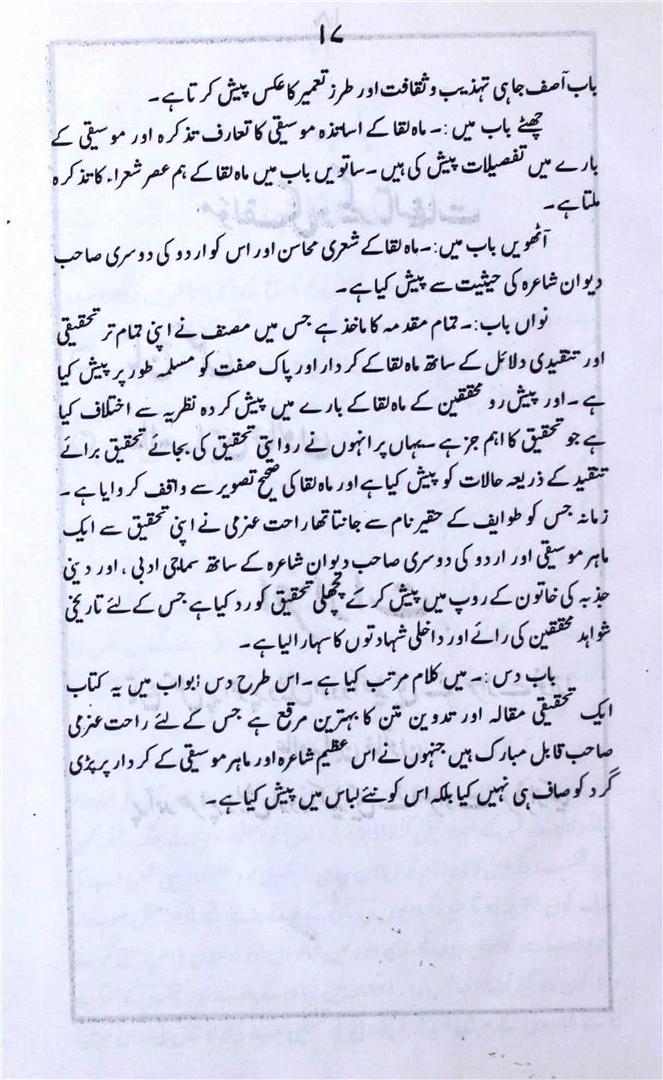 ۱۷
باب آصف جاہی تہذیب و ثقافت اور طرز تعمیر کا عکس پیش کرتا ہے۔
چھٹے باب میں :۔ ماہ لقا کے اساتذہ موسیقی کا تعارف تذکرہ اور موسیقی کے
بارے میں تفصیلات پیش کی ہیں ۔ ساتویں باب میں ماہ لقا کے ہم عصر شعراء کا تذکرہ
ملتا ہے۔
آٹھویں باب میں :۔ ماہ لقا کے شعری محاسن اور اس کو اردو کی دوسری صاحب
دیوان شاعرہ کی حیثیت سے پیش کیا ہے۔
نواں باب :۔ تمام مقدمہ کا ماخذ ہے جس میں مصنف نے اپنی تمام تر تحقیقی
اور تنقیدی دلائل کے ساتھ ماہ لقا کے کردار اور پاک صفت کو مسلمہ طور پر پیش کیا
ہے ۔ اور پیش رو محققین کے ماہ لقا کے بارے میں پیش کردہ نظریہ سے اختلاف کیا
ہے جو تحقیق کا اہم جز ہے ۔ یہاں پر انہوں نے روایتی تحقیق کی بجائے تحقیق برائے
تنقید کے ذریعہ حالات کو پیش کیا ہے اور ماہ لقا کی صحیح تصویر سے واقف کروایا ہے ۔
زمانہ جس کو طوایف کے حقیر نام سے جانتا تھا راحت عزمی نے اپنی تحقیق سے ایک
ماہر موسیقی اور اردو کی دوسری صاحب دیوان شاعرہ کے ساتھ سماجی ادبی ، اور دینی
جذبہ کی خاتون کے روپ میں پیش کر کے پچھلی تحقیق کو رد کیا ہے جس کے لئے تاریخی
شواہد محققین کی رائے اور داخلی شہادتوں کا سہارا لیا ہے۔
باب دس :۔ میں کلام مرتب کیا ہے ۔ اس طرح دس ابواب میں یہ کتاب
ایک تحقیقی مقالہ اور تدوین متن کا بہترین مرقع ہے جس کے لئے راحت عزمی
صاحب قابل مبارک ہیں جنہوں نے اس عظیم شاعرہ اور ماہر موسیقی کے کردار پر پڑی
گرد کو صاف ہی نہیں کیا بلکہ اس کو نئے لباس میں پیش کیا ہے ۔